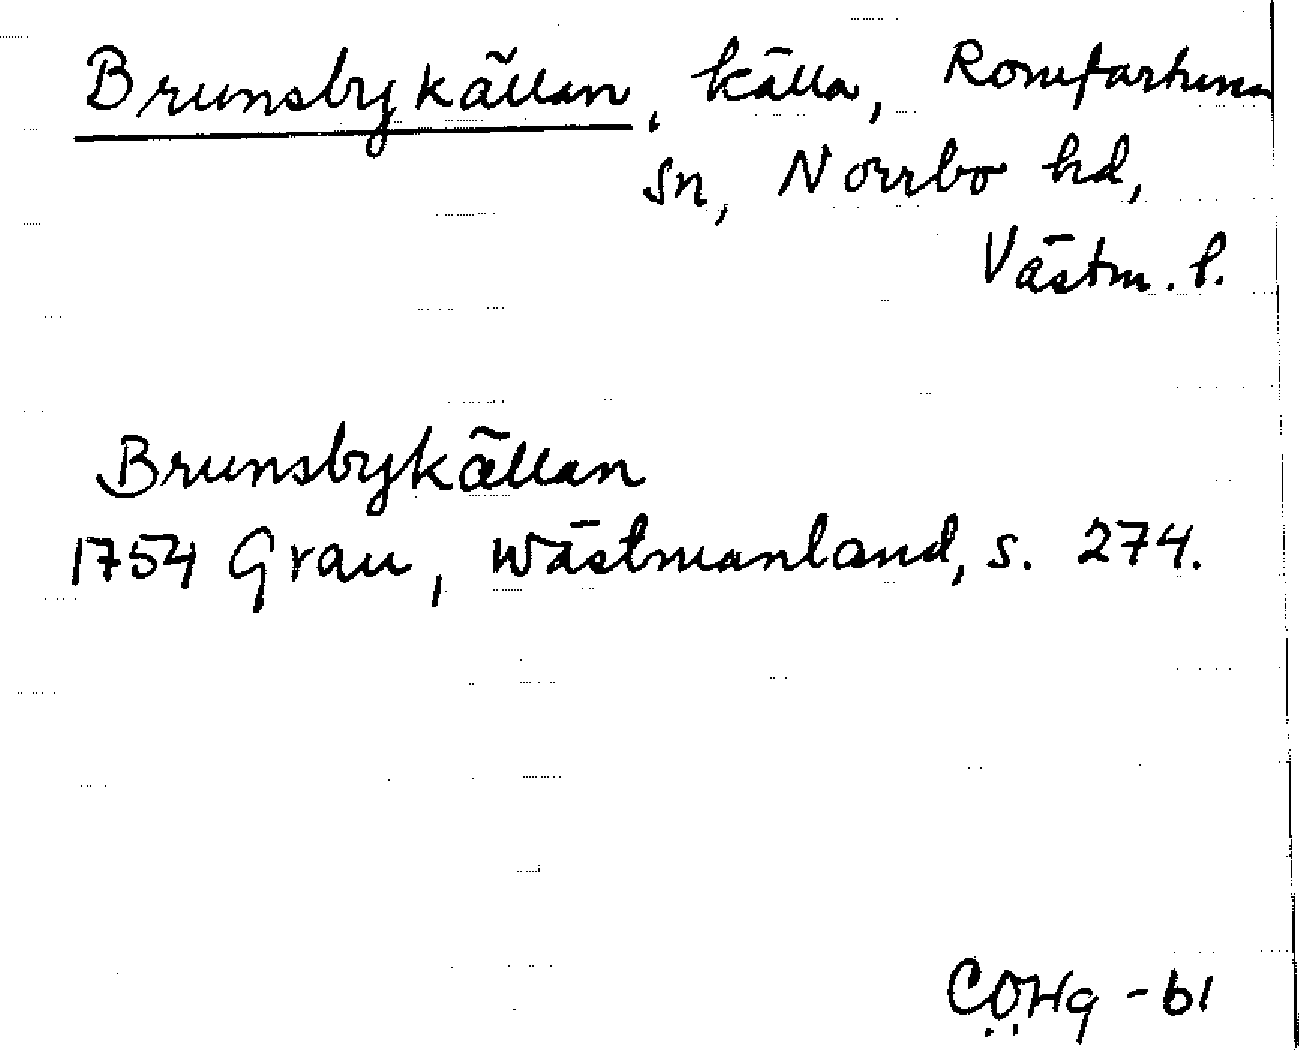 Brunsbykällan, källa, Romfartuna
sn, Norrbo hd,
Västm. l.
Brunsbykällan
1754 Grau, Wästmanland, s. 274.
-61